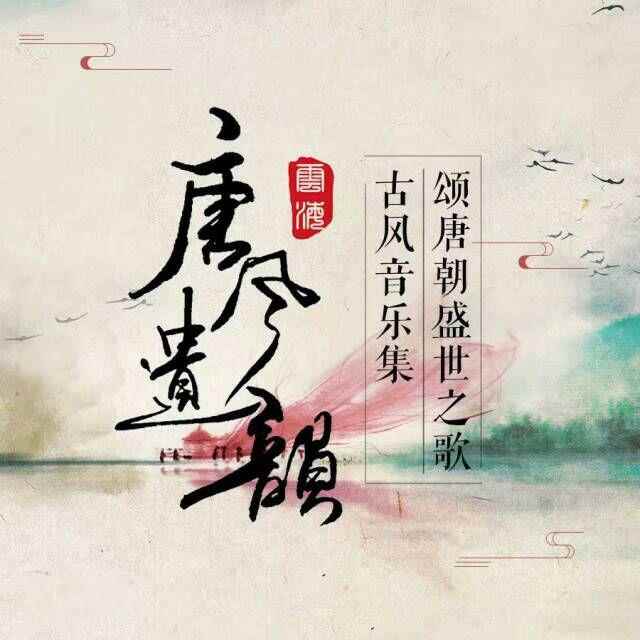 唐风
遗韻
雲海
颂唐朝盛世之歌
古风音乐集